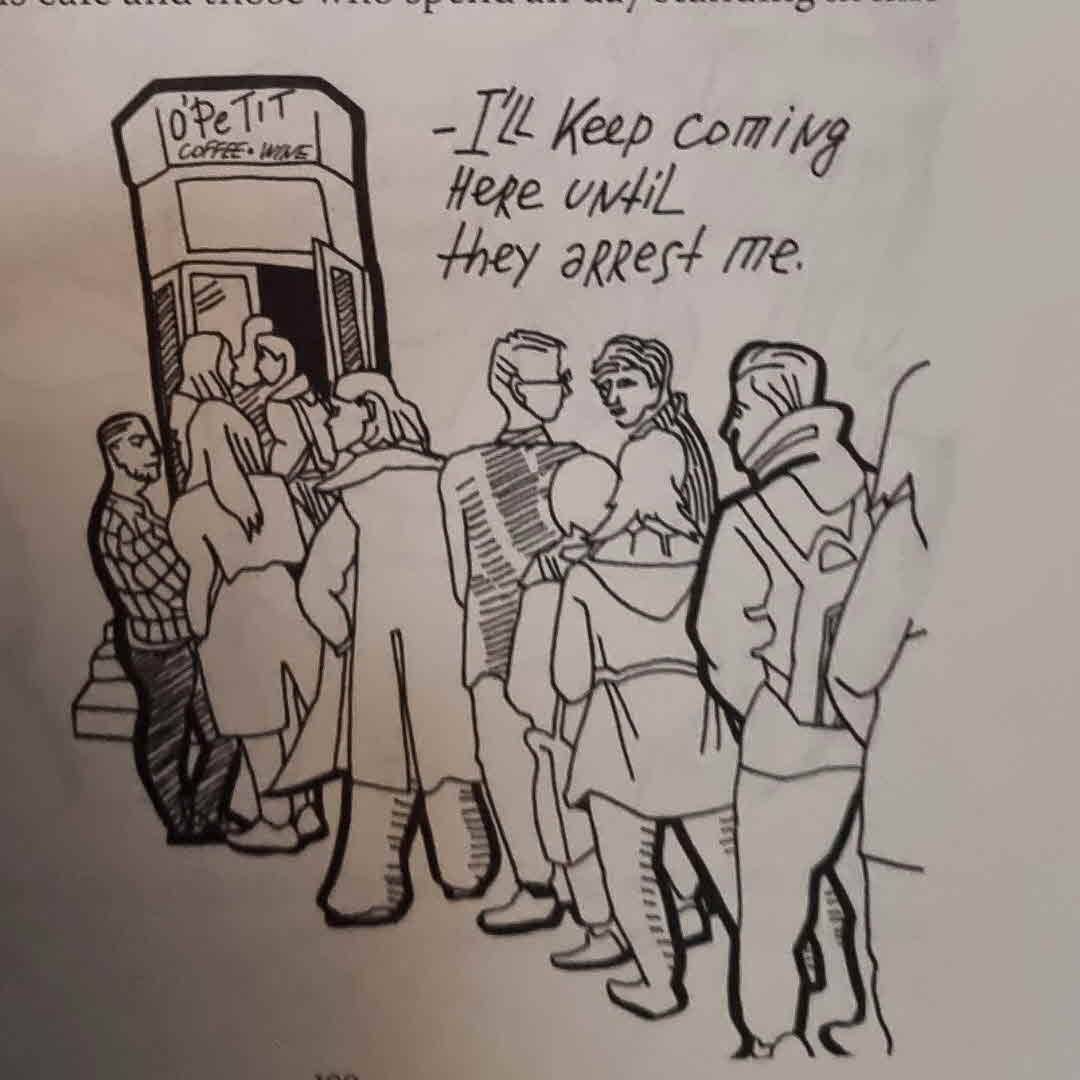 is cafe and those who spend all day standing in line
O'PeTiT
COFFEE • WINE
- I'LL Keep coming
Here until
they arrest me.